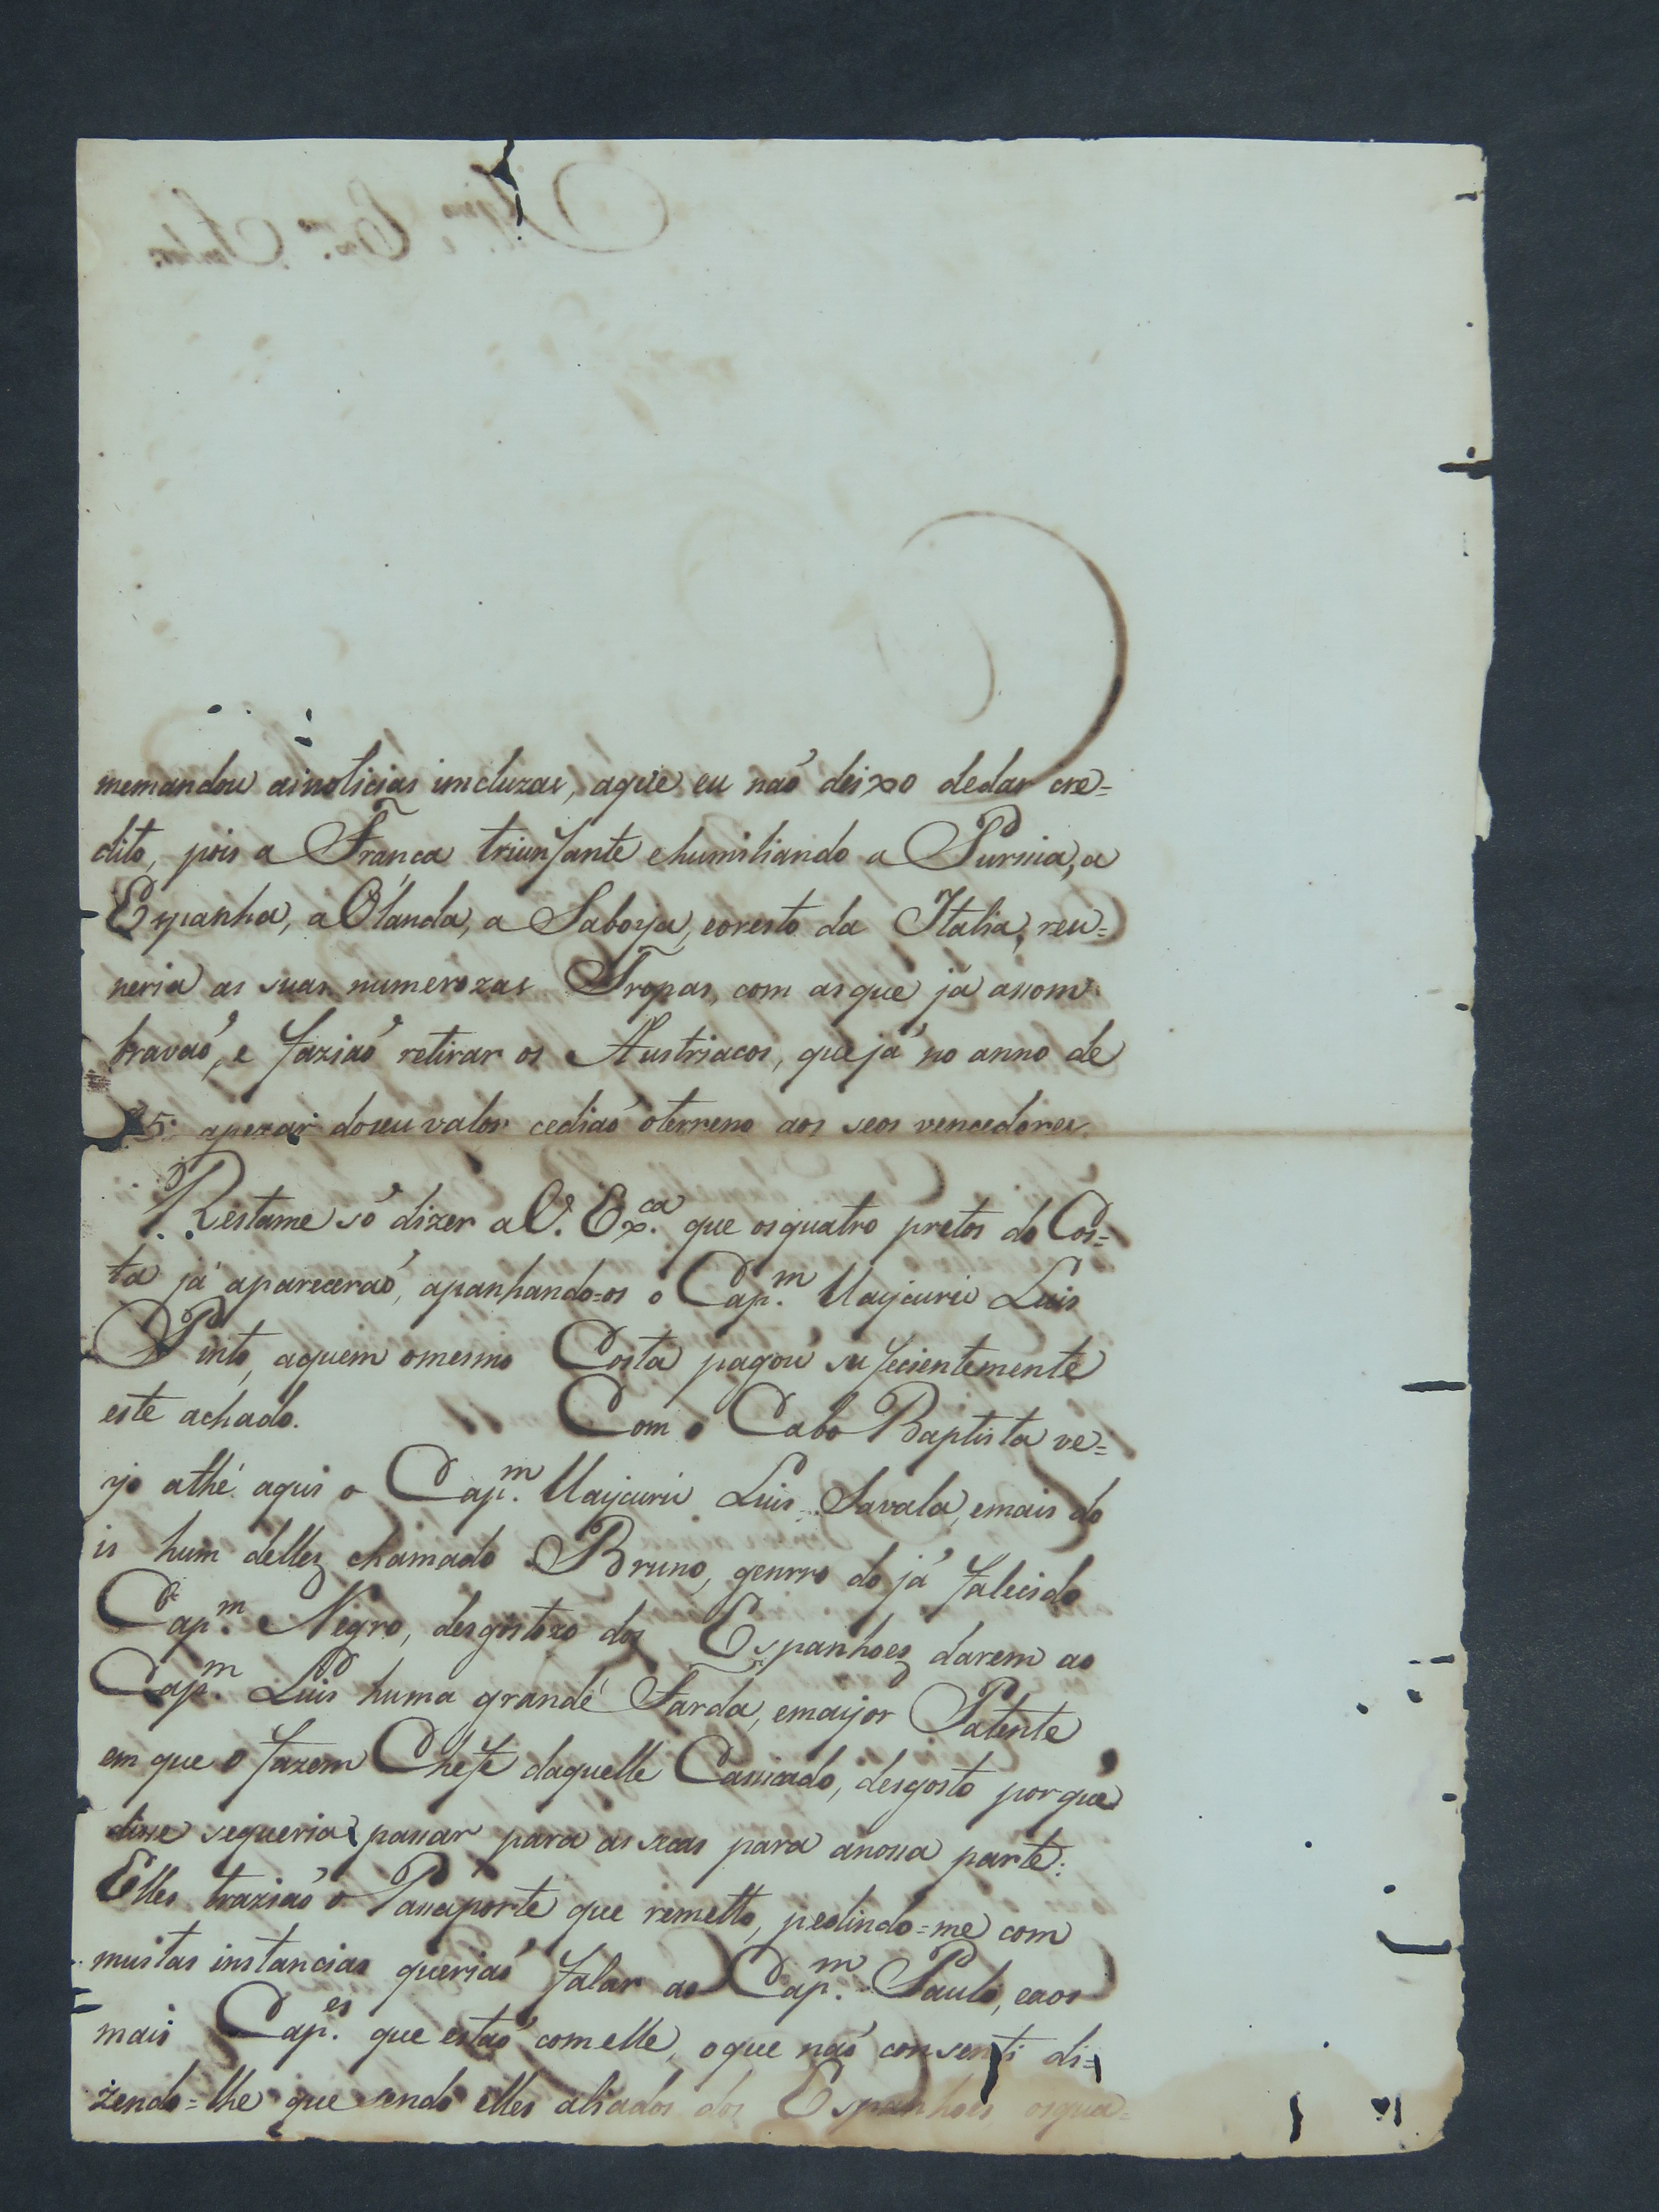 memandou asnoticias imcluzas, aque eu naõ deixo dedar cre=
dito, pois a França triunfante ehumiliando a Pursia, a
Espanha, a Olanda, a Saboya, eoresto da Italia, reu=
neria as suas numerozas Tropas, com asque já assom
bravaõ, e faziaõ retirar os Austriacos, quejá no anno de
95. apezar doseu valor cediaõ oterreno aos seos vencedores.
Restame só dizer aV. Exca. que osquatro pretos do Cos=
ta já aparecerão, apanhando=os o Capm. Uaycurú Luis
Pinto, aquem omesmo Costa pagou sufecientemente
este achado. Com o Cabo Baptista ve=
yo athé aqui o Capm. Uaycurú Luis Savala, emais do
is hum dellez chamado Bruno, genrro do já falecido
Capm. Negro, desgostozo dos Espanhoez darem ao
Capm. Luis huma grande Farda, emayor Patente
em que o fazem Chefe daquelle Cassicado, desgosto porque
disse sequeria passar para as secas para anossa parte:
Elles traziaõ o Passaporte que remetto, pedindo=me com
muitas instancias queriaõ falar ao Capm. Paulo, eaos
mais Capes. que estaõ comelle, oque naõ consenti di=
zendo=lhe que sendo elles aliados dos Espanhoes osqua=